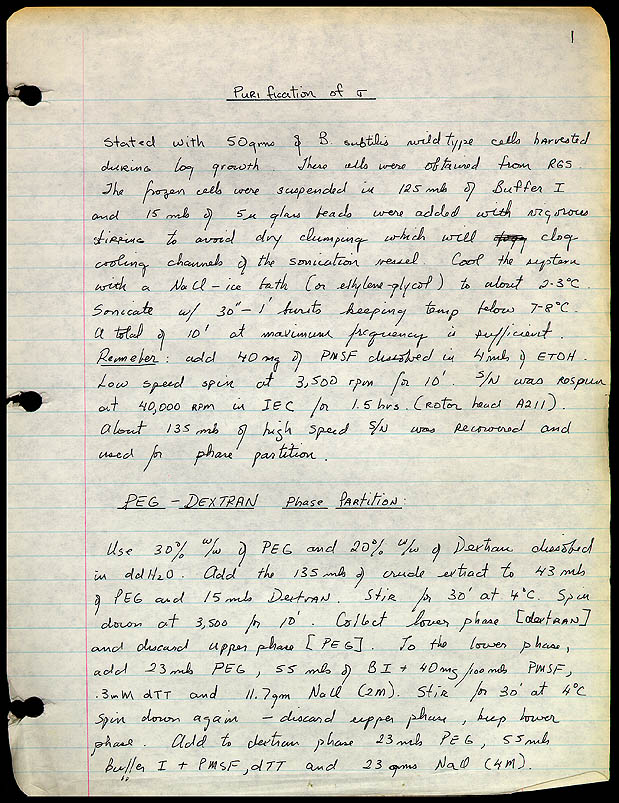 1
Purification of σ
Stated with 50gms of B. subtilis wild type cells harvested
during log growth. These cells were obtained from RGS.
The frozen cells were suspended in 125 mls of Buffer I
and 15 mls of 5u glass beads were added with vigorous
stirring to avoid dry clumping which will clog
cooling channels of the sonication vessel. Cool the system
with a NaCl-ice bath (or ethylene-glycol) to about 2-3°C.
Sonicate w/ 30"-1' bursts keeping temp below 7-8°C.
A total of 10' at maximum frequency is sufficient.
Remeber: add 40 mg of PMSF dissolved in 4 mls of ETOH.
Low speed spin at 3,500 rpm for 10'. S/N was respun
at 40,000 RPM in IEC for 1.5 hrs. (Rotor head A211).
About 135 mls of high speed S/N was recovered and
used for phase partition.
PEG - DEXTRAN Phase Partition:
Use 30% w/w of PEG and 20% w/w of Dextran dissolved
in ddH2O. Add the 135 mls of crude extract to 43 mls
of PEG and 15 mls Dextran. Stir for 30' at 4°C. Spin
down at 3,500 for 10'. Collect lower phase [dextran]
and discard upper phase [PEG]. To the lower phase,
add 23 mls PEG, 55 mls of BI + 40mg/100mls PMSF,
.3mM dTT and 11.7gm NaCl (2M). Stir for 30' at 4°C
Spin down again - discard upper phase, keep lower
phase. Add to dextran phase 23 mls PEG, 55mls
Buffer I + PMSF, dTT and 23 gms NaCl (4M).